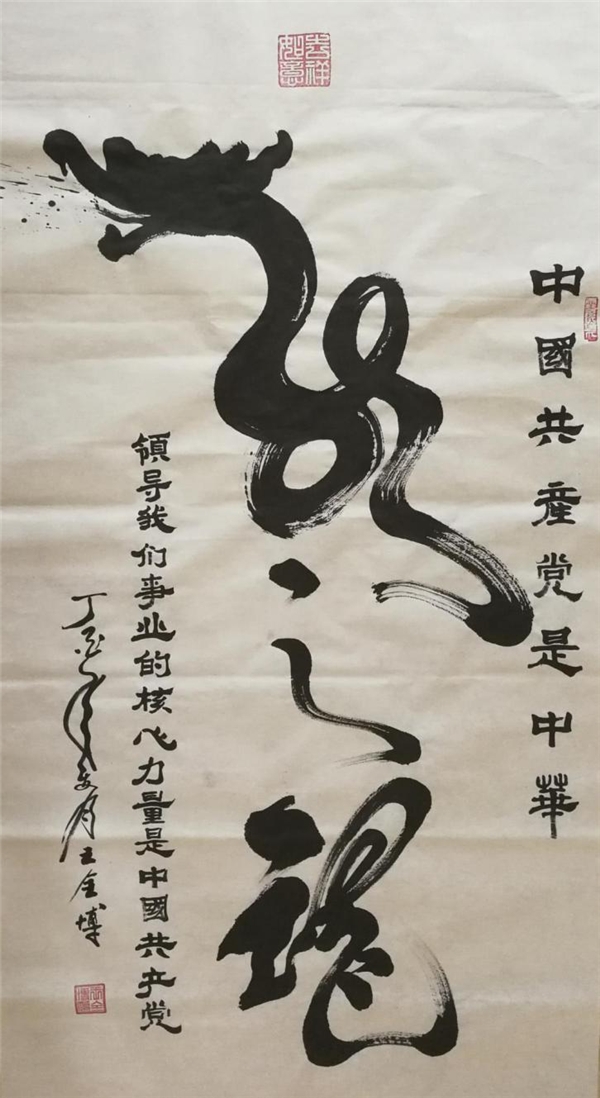 吉祥如意
中國共産党是中華
龍之魂
領导我们事业的核心力量是中國共产党
丁酉年夏月王金博